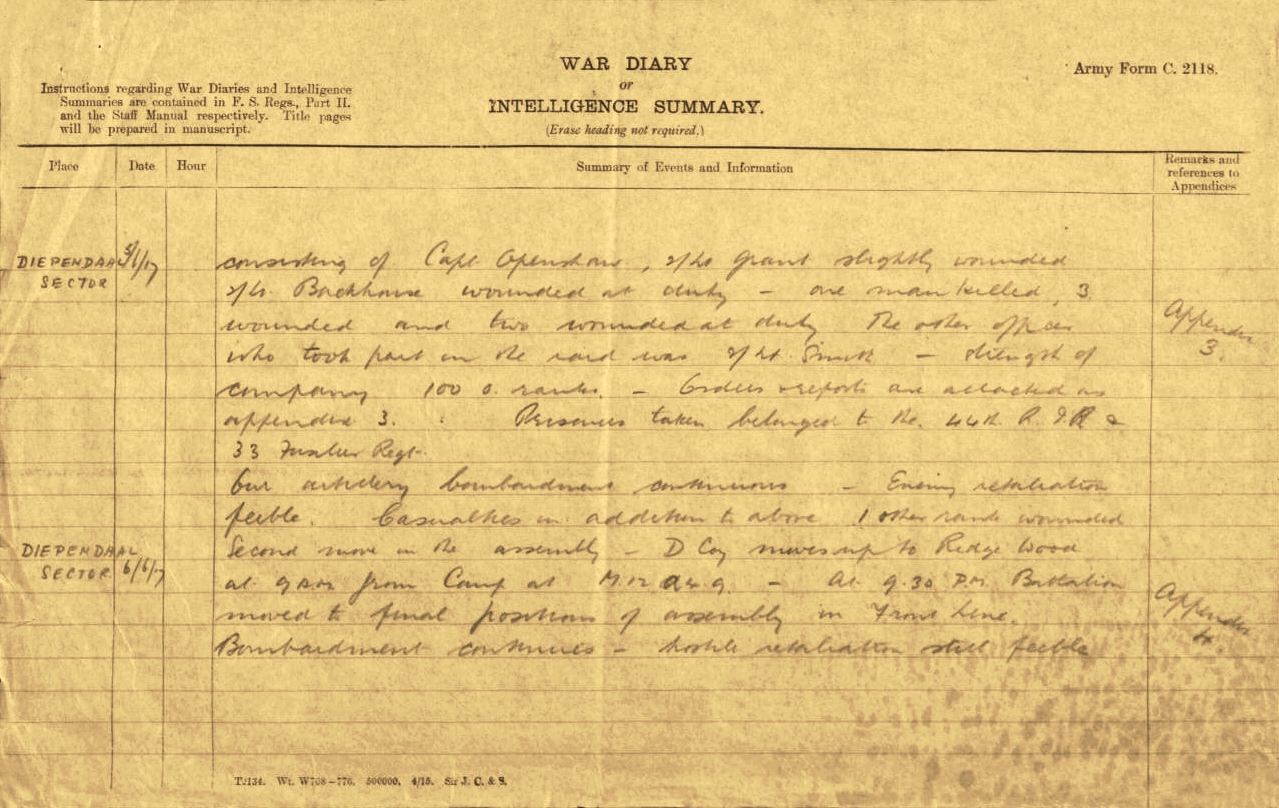 WAR DIARY
or
INTELLIGENCE SUMMARY.
(Erase heading not required.)
Army Form C. 2118.
Instructions regarding War Diaries and Intelligence
Summaries are contained in F. S. Regs., Part II.
and the Staff Manual respectively. Title pages
will be prepared in manuscript.
Place Date Hour Summary of Events and Information Remarks and references to Appendices
DIEPENDAAL SECTOR 5/6/17 consisting of Capt Openshaw, 2/Lt Grant slightly wounded
2/Lt. Backhouse wounded at duty – one man killed, 3
wounded and two wounded at duty The other officer
Appendix 3.
who took part in the raid was 2/Lt. – strength of
company 100 o. ranks. – Orders & reports are attached as
appendix 3. Prisoners taken belonged to the 44th R. I. R &
33 Fusilier Regt.
Our artillery bombardment continuous – Enemy retaliation
feeble. Casualties in addition to above 1 other rank wounded
DIEPENDAAL SECTOR 6/6/17 Second move in the assembly – D Coy moves up to Ridge Wood
at 9 from Camp at M.12 a 4.9. – At 9.30 P.M. Battalion
moved to final positions of assembly in Front Line.
Appendix 4.
Bombardment continues – hostile retaliation still feeble
T.134. Wt. W708–776. 500000. 4/15. Sir J. C. & S.